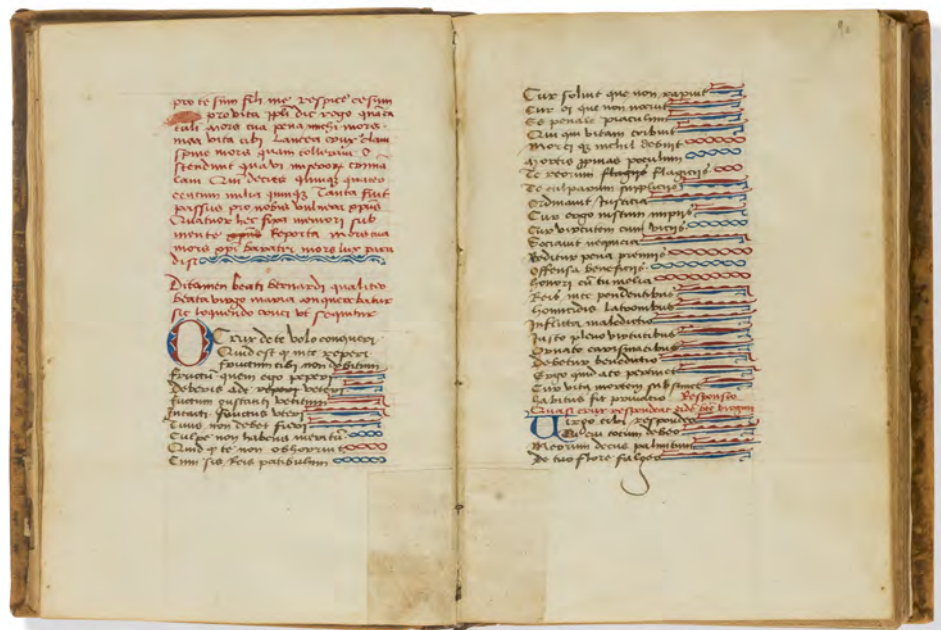 pro te sum fili mi respice cesum
pro vita dic rogo
tali mors tua pena michi mors
mea vita tibi Lancea crux clavi
spine mors quam tolleravi
stendunt qua vi miseror
lavi Qui decies quinqz quater
centum milia quinqz Tanta fuit
passus pro nobis vulnera
Quatuor hec fixa memori sub
mente Reporta mors tua
mors baratri mors lux para
disi
Dictamen beati bernardi qualiter
beata virgo maria conquerebatur
sic loquendo cruci ut sequitur
O Crux de te volo conqueri
Quid est q in te reperi
fructum tibi non debitum
fructu quem virgo peperi
Deberis ade veteri
fructum gustanti vetitum
Intacti fructus uteri
Tuus non debet fieri
Culpe non habens meritu
Quid q te non
Cum sis Reis patibulum
90
Cur solvit que non rapuit
Cur ei que non nocuit
Es penale piaculum
Qui vitam tribuit
Morti qz nichil debuit
Mortis poculum
Te reorum flagris flagiciis
Te culparum suppliciis
Ordinavit Justicia
Cur ergo iustum impiis
Cur virtutem cum viciis
Sociavit nequicia
Redditur pena premiis
Offensa beneficiis
honori contumelia
Reis in te pendentibus
homicidis latronibus
Inflicta maledictio
Justo pleno virtutibus
Ornato carismatibus
Debetur benedictio
Ergo quid ad te pertinet
Cur vita mortem sustinet
habitus fit privatio Responsio
Quasi crux respondeat
Virgo tibi respondeo
Tibi cui totum debeo
Meorum decus palmitum
De tuo flore fulgeo